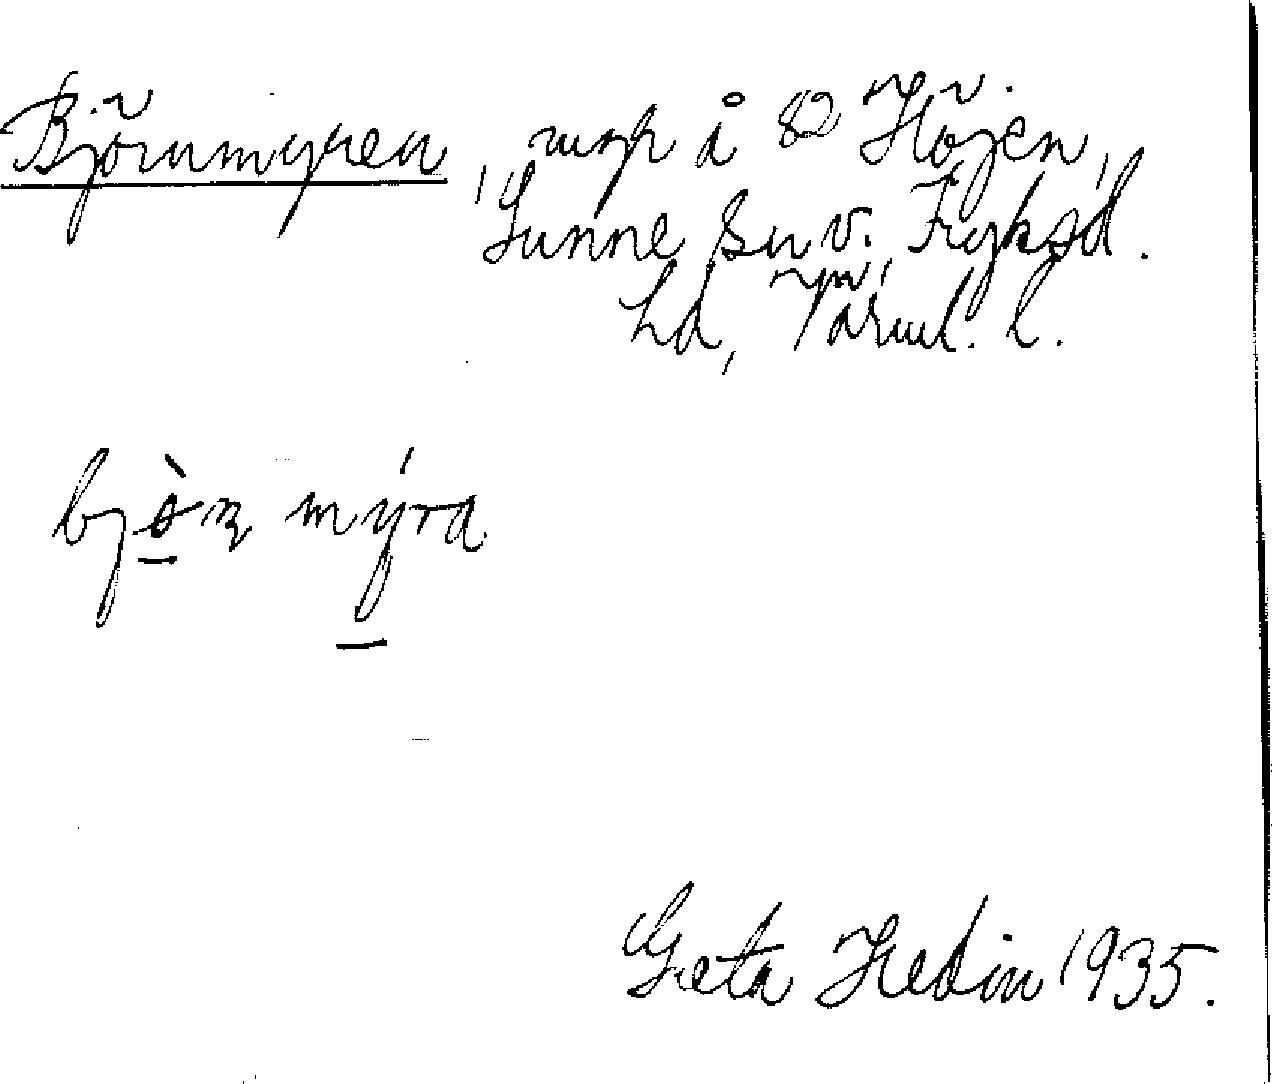 Björnmyren, msp å 82 Höjen,
Sunne sn v. Fryksd.
hd, Värml. l.
bjò̠ɳ mý̠ra
Greta Hedin 1935.